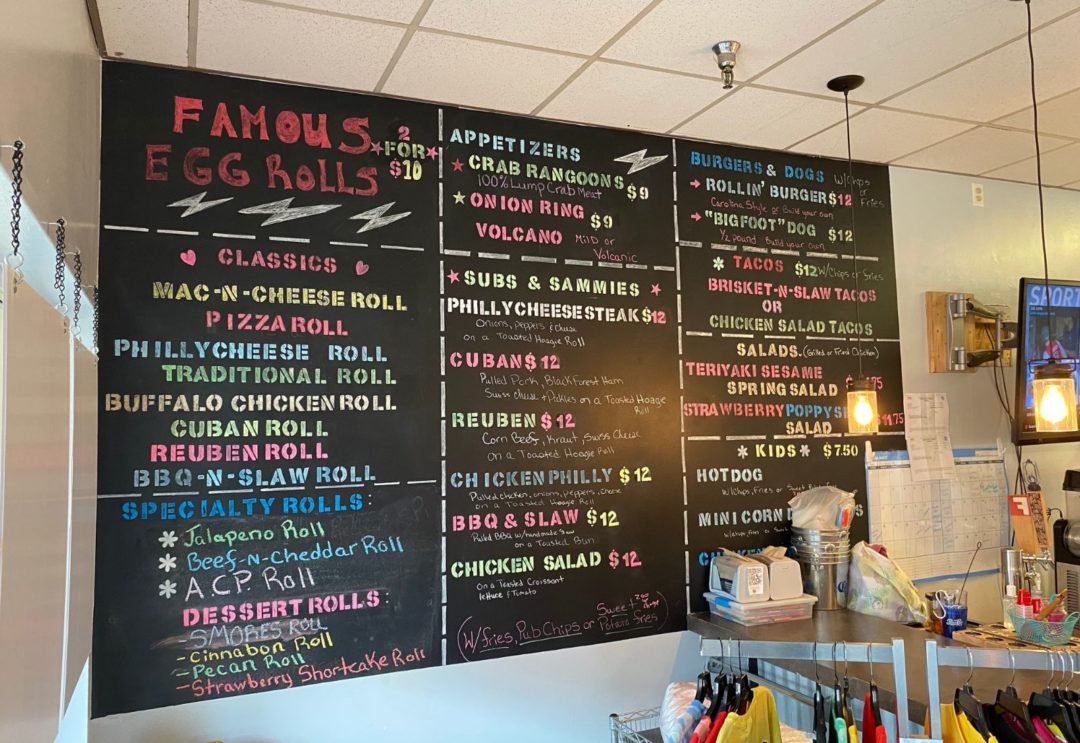 FAMOUS
EGG ROLLS
2
FOR
$10
CLASSICS
MAC-N-CHEESE ROLL
PIZZA ROLL
PHILLYCHEESE ROLL
TRADITIONAL ROLL
BUFFALO CHICKEN ROLL
CUBAN ROLL
REUBEN ROLL
BBQ-N-SLAW ROLL
SPECIALTY ROLLS:
Jalapeno Roll
Beef-N-Cheddar Roll
A.C.P. Roll
DESSERT ROLLS:
SMORES ROLL
- Cinnabon Roll
- Pecan Roll
- Strawberry Shortcake Roll
APPETIZERS
CRAB RANGOONS $9
100% Lump Crab Meat
ONION RING $9
VOLCANO Mild or
Volcanic
SUBS & SAMMIES
PHILLYCHEESESTEAK $12
Onions, Peppers & Cheese
on a Toasted Hoagie Roll
CUBAN $12
Pulled Pork, Black Forest Ham
Swiss Cheese + Pickles on a Toasted Hoagie
Roll
REUBEN $12
Corn Beef, Kraut, Swiss Cheese
on a Toasted Hoagie Roll
CHICKEN PHILLY $12
Pulled chicken, onions, peppers, cheese
on a Toasted Hoagie Roll
BBQ & SLAW $12
Pulled BBQ w/handmade Slaw
on a Toasted Bun
CHICKEN SALAD $12
on a Toasted Croissant
lettuce & Tomato
(W/fries, Pub Chips or Sweet
Potato Fries)
BURGERS & DOGS W/Chips
or
Fries
ROLLIN' BURGER $12
Carolina Style or Build your own
"BIGFOOT" DOG $12
1/2 pound Build your own
TACOS $12 W/Chips or Fries
BRISKET-N-SLAW TACOS
OR
CHICKEN SALAD TACOS
SALADS. (Grilled or Fried Chicken)
TERIYAKI SESAME
SPRING SALAD
STRAWBERRY POPPY
SALAD
KIDS $7.50
HOT DOG
W/Chips, Fries or Sweet
MINI CORN
SPORT